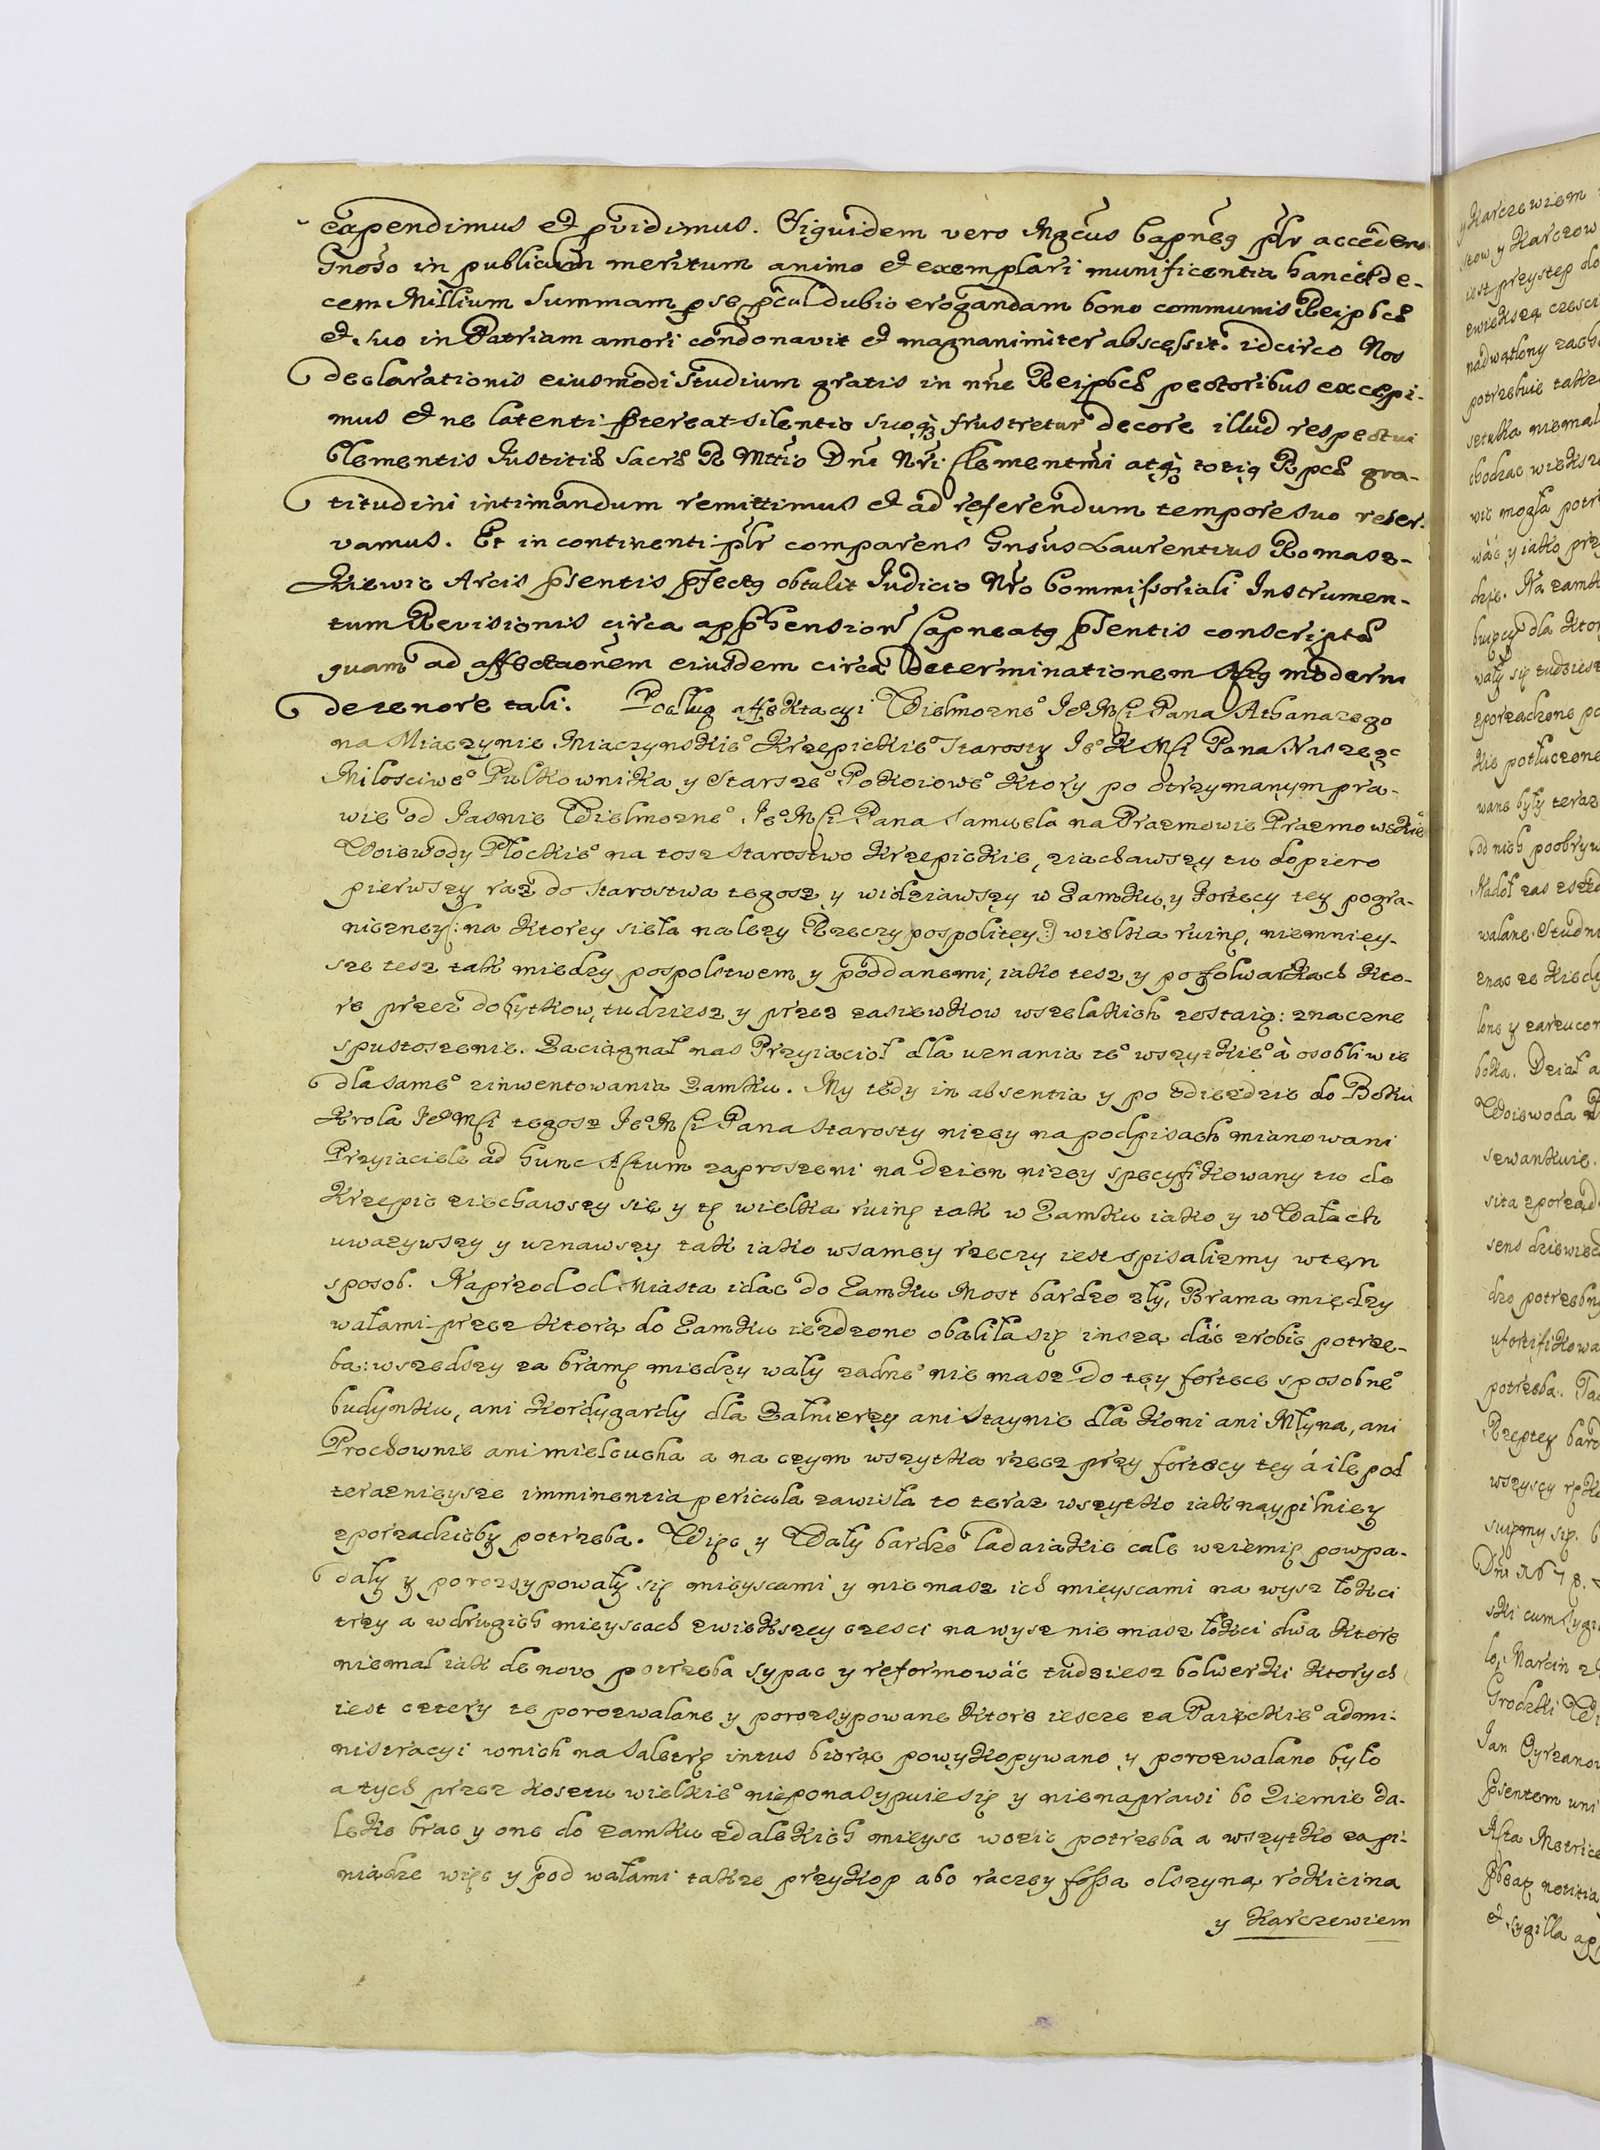 expendimus et pvidimus. Siquidem vero Mgcus Capneus plr accedens
Gnoso in publicum meritum animo et exemplari munificentia hance de-
cem Millium Summam p se pcul dubio erogandam bono communis Reipbcæ
et suo in Patriam amori condonavit et magnanimiter abscessit. idcirco Nos
declarationis eiusmodi studium gratis in nne Reipbcæ pectoribus excepi-
mus et ne latenti ptereat silentio suoq frustretur decore illud respectui
Clementis Justitiæ Sacræ R Mttis Dni Nri Clementmi atq totiq Rpcæ gra-
titudini intimandum remittimus et ad referendum tempore suo reser-
vamus. Et in continenti plr comparens Gnsus Laurentius Romasz-
kiewic Arcis psentis pfectq obtulit Judicio Nro Commissoriali Instrumen-
tum Revisionis circa apphensionem Capneatq psentis conscriptæ
quam ad affectaonem eiusdem circa determinationem moderni
de tenore tali. Podług affektacyi Wielmozneo Jeo Msci Pana Athanazego
na Miaczynie Miaczynskieo Krzepickieo Starosty Jeo K Msci Pana Naszego
Milosciweo Pulkownika y Starszeo Pokoioweo ktory po otrzymanym pra-
wie od Jasnie Wielmozneo Jeo Msci Pana Samuela na Prazmowie Prazmowskieo
Woiewody Płockieo na tosz Starostwo Krzepickie, ziachawszy tu dopiero
pierwszy raz do Starostwa tegosz y widziawszy w Zamku, y fortecy tey pogra-
niczney (: na ktorey siela nalezy Rzeczy pospolitey :) wielka ruinę, niemniey-
sze tesz tak miedzy pospolstwem y poddanemi, iako tesz y po folwarkach kto-
re przez dobytkow, tudziesz y przez zasiewkow wszelakich zostaią: znaczne
spustoszenie. Zaciągnał nas Przyiacioł dla uznania teo wszytkieo à osobliwie
dla sameo zinwentowania Zamku. My tedy in absentia y po odiezdzie do Boku
Krola Jeo Msci tegosz Jeo Msci Pana Starosty nizey na podpisach mianowani
Przyiaciele ad hunc Actum zaproszeni na dzien nizey specyfikowany tu do
Krzepic ziechawszy się y tę wielka ruinę tak w Zamku iako y w Wałach
uwazywszy y uznawszy tak iako w samey rzeczy iest opisalizmy w ten
sposob. Naprzod od Miasta idac do Zamku Most bardzo zły, Brama między
wałami przez ktorą do Zamku iezdzono obaliła się inszą dać zrobic potrze-
ba: wszedszy za bramę miedzy wały zadneo nie masz do tey fortece sposobneo
budynku, ani Kordygardy dla Zalnierzy ani Staynie dla koni ani Młyna, ani
Prochownie ani mielcucha a na czym wszytka rzecz przy fortecy tey á ile pod
teraznieysze imminentia pericula zawisła to teraz wszytko iak naypilniey
zporzadzicby potrzeba. Więc y Wały bardzo ladaiakie cale w ziemię powpa-
dały y porozsypowały się mieyscami y nie masz ich mieyscami na wysz łokci
trzy a w drugich mieyscach zwiekszey czesci na wysz nie masz łokci dwa ktore
niemal iak de novo potrzeba sypac y reformowác tudziesz bolwerki ktorych
iest cztery te porozwalane y porozsypowane ktore iescze za Paięckieo admi-
nistracyi w nich na Saletrę intus biorąc powykopywano y porozwalano było
a tych przez kosztu wielkieo nieponasypuie się y nienaprawi bo Ziemie da-
leko brac y one do zamku z dalekich mieysc wozic potrzeba a wszytko za pi-
niadze więc y pod wałami takze przykop abo raczey fossa olszyną rokicina
y Karczewiem